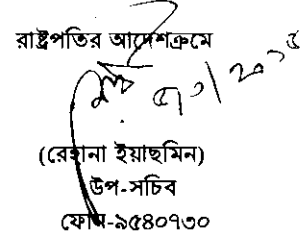 রাষ্ট্রপতির আদেশক্রমে
(রেহানা ইয়াছমিন)
উপ-সচিব
ফোন-৯৫৪০৭৩০